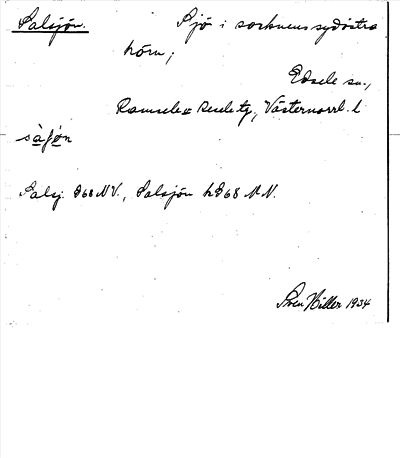 Salsjön. Sjö i socknens sydöstra
hörn;
Edsele sn.,
Ramsele o Resele tg, Västernorrl. l
sàʃøn
Salsj. 968 NV., Salsjön h968 NV.
Sven Hiller 1934